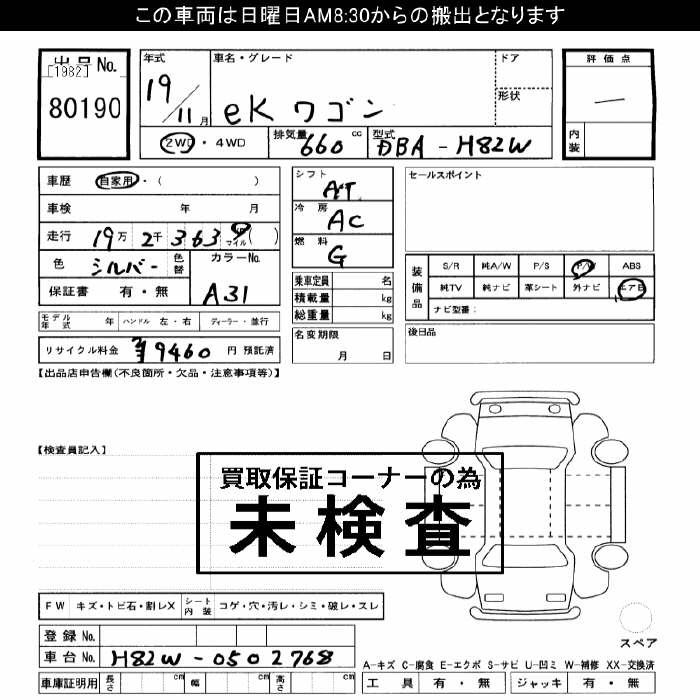 この車両は日曜日AM8:30からの搬出となります
出品No.
[1982]
80190
年式
19/11月
車名・グレード
eK ワゴン
ドア
形状
2WD・4WD
排気量 660 cc
型式 DBA-H82W
評価点
一
内装
車歴 自家用・( )
車検 年 月
走行 19万 2千 363 マイル( )
色 シルバー 色替
カラーNo. A31
保証書 有・無
シフト AT
冷房 AC
燃料 G
乗車定員 名
積載量 kg
総重量 kg
名変期限
月 日
セールスポイント
装備品
S/R 純A/W P/S P/W ABS
純TV 純ナビ 革シート 外ナビ エアB
ナビ型番:
後日品
モデル年式 年 ハンドル 左・右 ディーラー・並行
リサイクル料金 ¥9460 円 預託済
【出品店申告欄(不良箇所・欠品・注意事項等)】
【検査員記入】
買取保証コーナーの為
未検査
FW キズ・トビ石・割レX シート内装 コゲ・穴・汚レ・シミ・破レ・スレ
登録No.
車台No. H82W-0502768
車庫証明用 長さ cm 幅 cm 高さ cm
スペア
A-キズ C-腐食 E-エクボ S-サビ U-凹ミ W-補修 XX-交換済
工具 有・無 ジャッキ 有・無